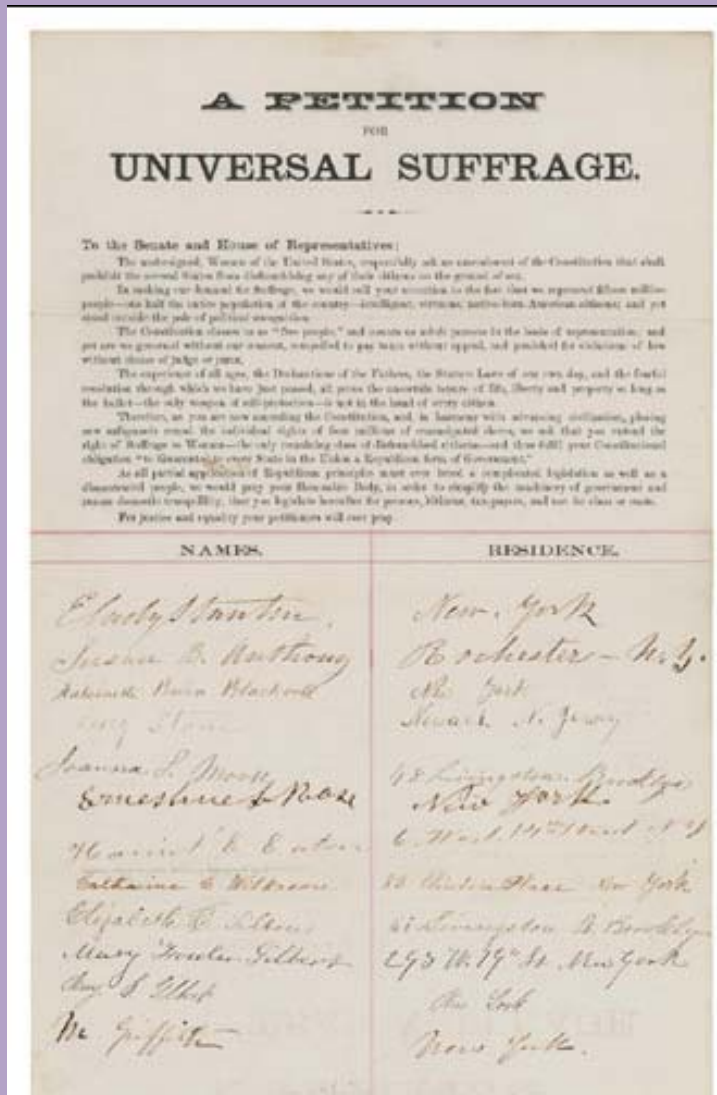 A PETITION
FOR
UNIVERSAL SUFFRAGE.
To the Senate and House of Representatives:
The undersigned, Women of the United States, respectfully ask an amendment of the Constitution that shall
prohibit the several States from disfranchising any of their citizens on the ground of sex.
In making our demand for Suffrage, we would call your attention to the fact that we represent fifteen million
people—one half the entire population of the country—intelligent, virtuous, native-born American citizens; and yet
stand outside the pale of political recognition.
The Constitution classes us as "free people," and counts us whole persons in the basis of representation; and
yet are we governed without our consent, compelled to pay taxes without appeal, and punished for violations of law
without choice of judge or juror.
The experience of all ages, the Declarations of the Fathers, the Statute Laws of our own day, and the fearful
revolution through which we have just passed, all prove the uncertain tenure of life, liberty and property so long as
the ballot—the only weapon of self-protection—is not in the hand of every citizen.
Therefore, as you are now amending the Constitution, and, in harmony with advancing civilization, placing
new safeguards round the individual rights of four millions of emancipated slaves, we ask that you extend the
right of Suffrage to Woman—the only remaining class of disfranchised citizens—and thus fulfil your Constitutional
obligation "to Guarantee to every State in the Union a Republican form of Government."
As all partial application of Republican principles must ever breed a complicated legislation as well as a
discontented people, we would pray your Honorable Body, in order to simplify the machinery of government and
ensure domestic tranquillity, that you legislate hereafter for persons, citizens, tax-payers, and not for class or caste.
For justice and equality your petitioners will ever pray.
NAMES. RESIDENCE.
E Cady Stanton, New York
Susan B. Anthony Rochester - N.Y.
Antoinette Brown Blackwell New York
Lucy Stone Newark N. Jersey
Joanna S. Morse 48 Livingston Brooklyn
Ernestine L Rose New York
Harriet E Eaton 6 West 14th Street N.Y
Catharine C Wilkeson 83 Clinton Place New York
Elizabeth R Tilton 48 Livingston St Brooklyn
Mary Fowler Gilbert 293 W. 19th St New York
New York
M Griffith New York.